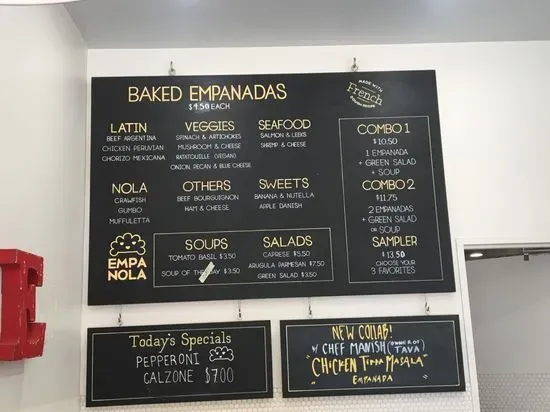 BAKED EMPANADAS
$4.50 EACH
MADE WITH
French
LATIN
BEEF ARGENTINA
CHICKEN PERUVIAN
CHORIZO MEXICANA
VEGGIES
SPINACH & ARTICHOKES
MUSHROOM & CHEESE
RATATOUILLE (VEGAN)
ONION, PECAN & BLUE CHEESE
SEAFOOD
SALMON & LEEKS
SHRIMP & CHEESE
NOLA
CRAWFISH
GUMBO
MUFFULETTA
OTHERS
BEEF BOURGUIGNON
HAM & CHEESE
SWEETS
BANANA & NUTELLA
APPLE DANISH
EMPA
NOLA
SOUPS
TOMATO BASIL $3.50
SOUP OF THE DAY $3.50
SALADS
CAPRESE $5.50
ARUGULA PARMESAN $7.50
GREEN SALAD $3.50
COMBO 1
$10.50
1 EMPANADA
+ GREEN SALAD
+ SOUP
COMBO 2
$11.75
2 EMPANADAS
+ GREEN SALAD
OR SOUP
SAMPLER
$13.50
CHOOSE YOUR
3 FAVORITES
Today's Specials
PEPPERONI
CALZONE $7.00
NEW COLLAB!
W/ CHEF MANISH (OWNER OF TAVA)
"CHICKEN TIKKA MASALA"
EMPANADA